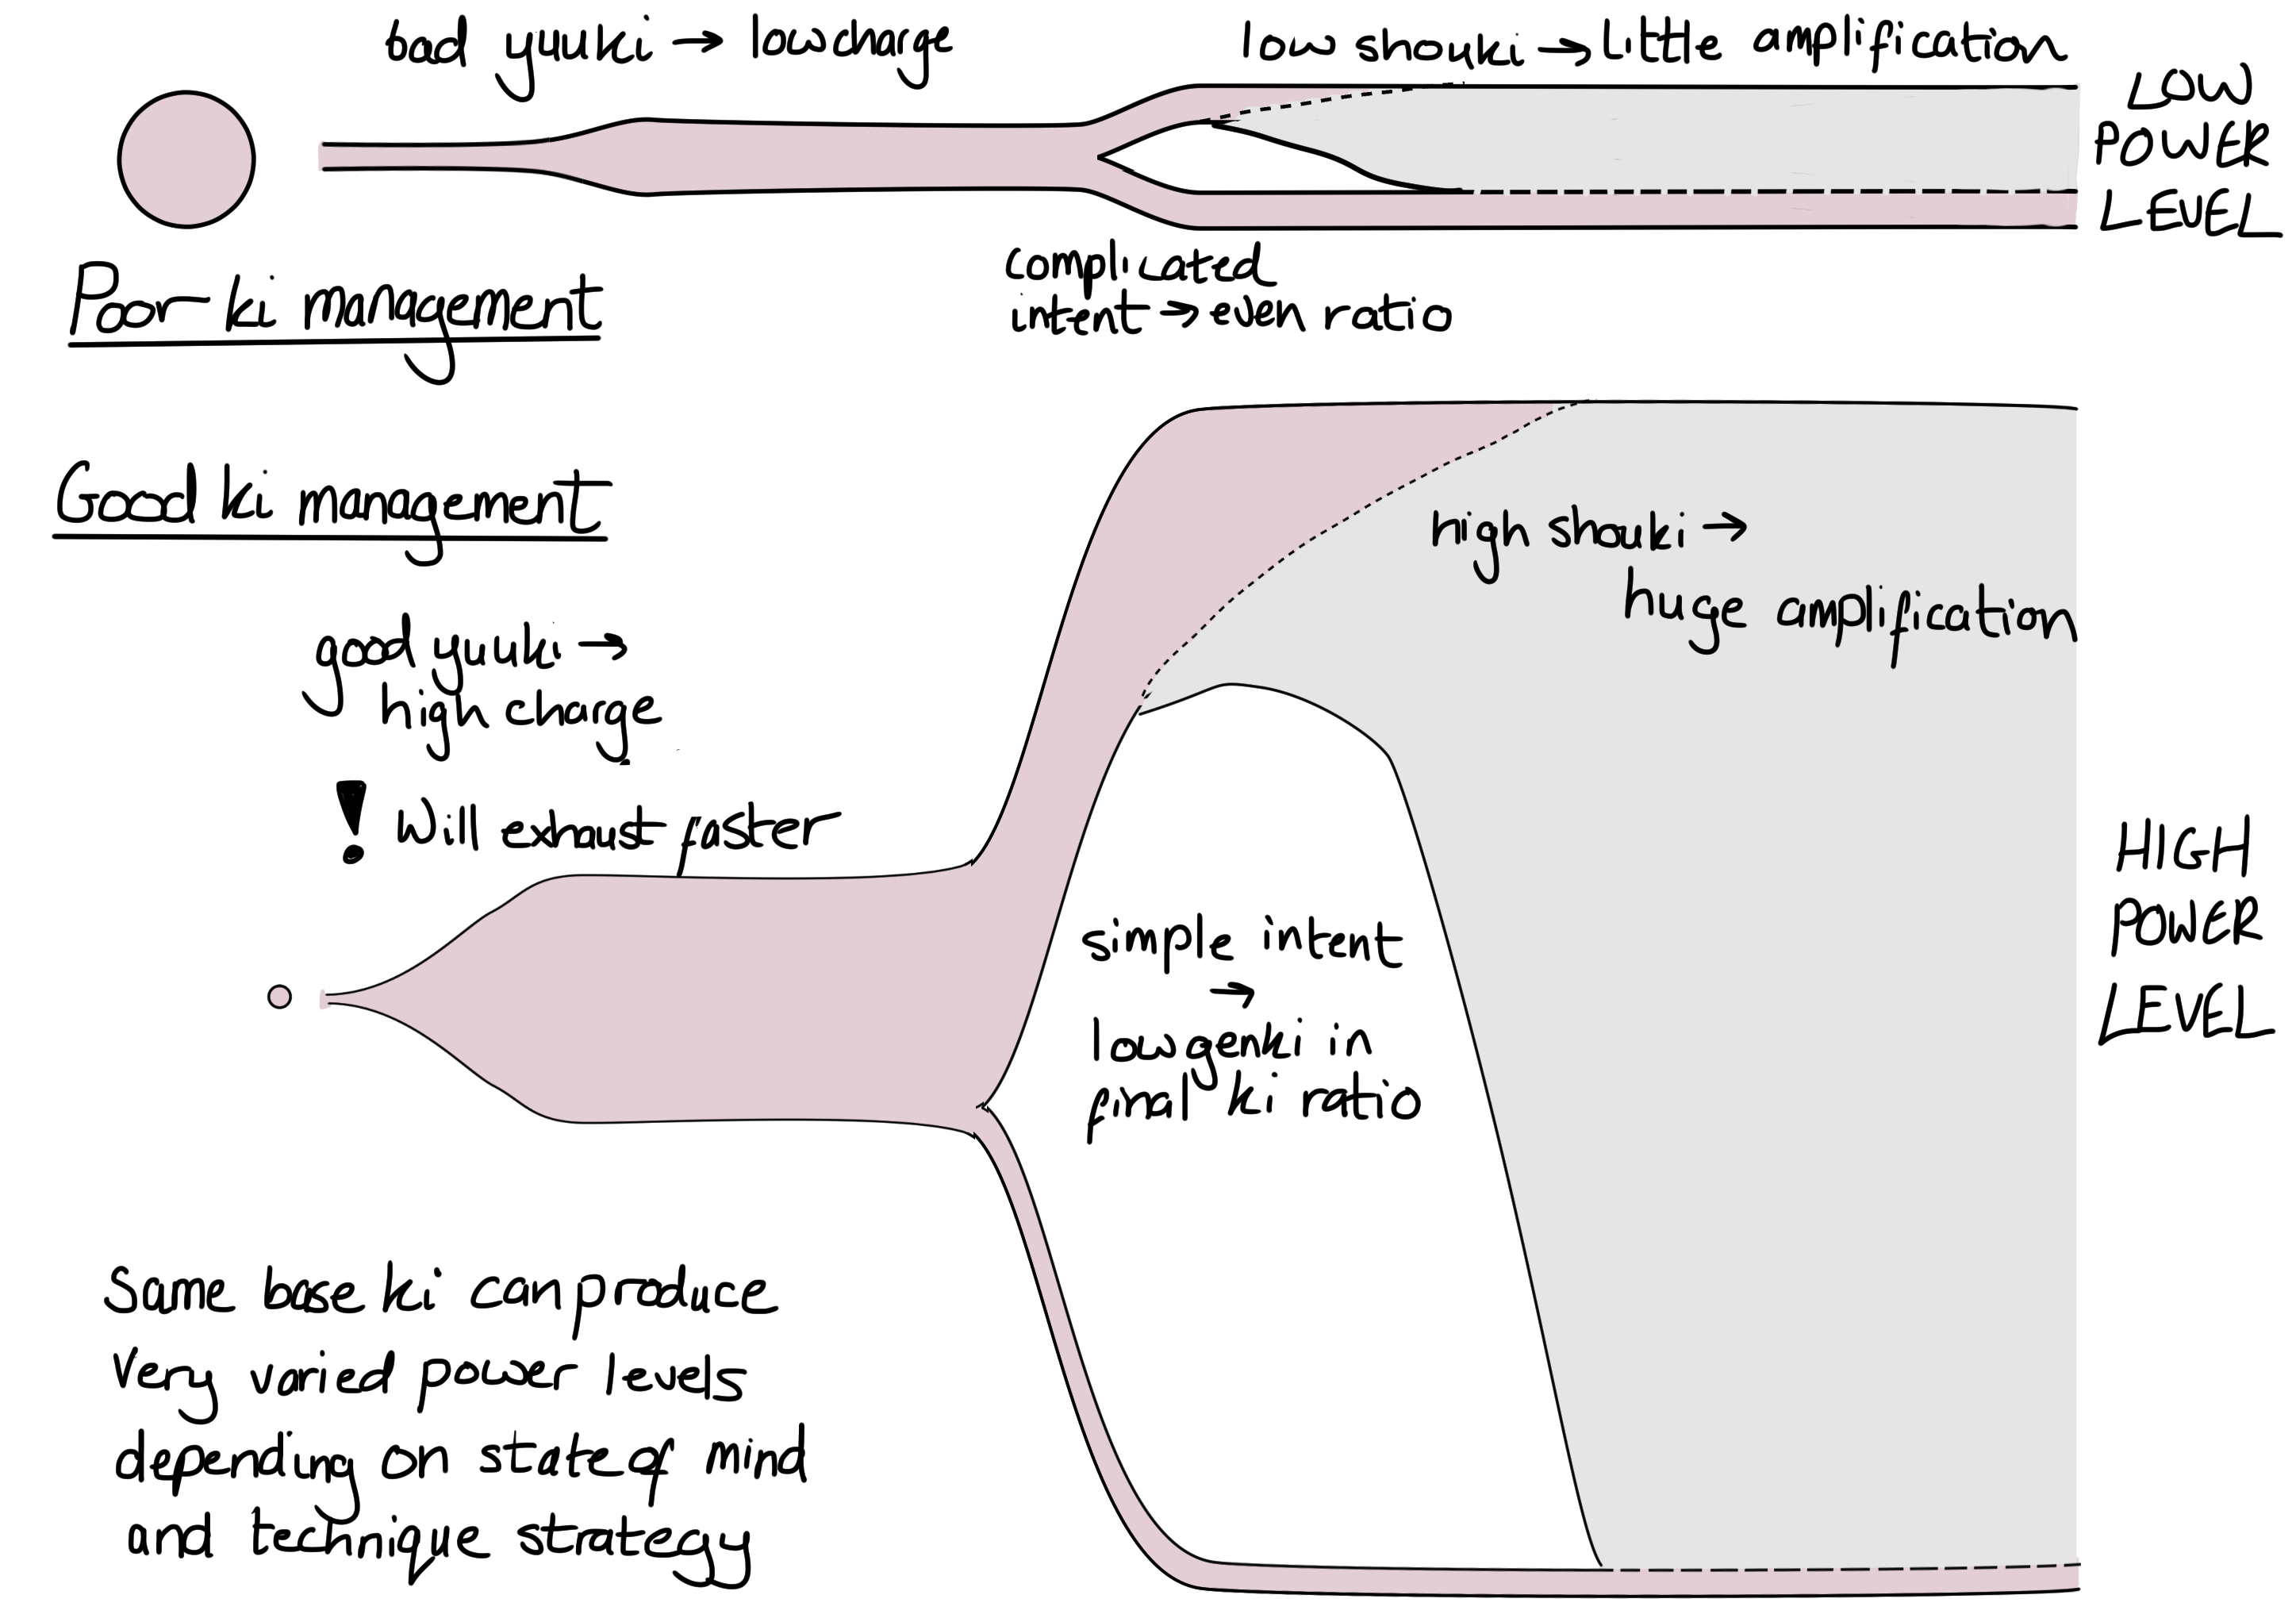 bad yuuki → low charge
low shouki → little amplification
LOW
POWER
LEVEL
Poor ki management
complicated
intent → even ratio
Good ki management
high shouki →
huge amplification
good yuuki →
high charge
! Will exhaust faster
simple intent
→
low genki in
final ki ratio
HIGH
POWER
LEVEL
Same base ki can produce
very varied power levels
depending on state of mind
and technique strategy